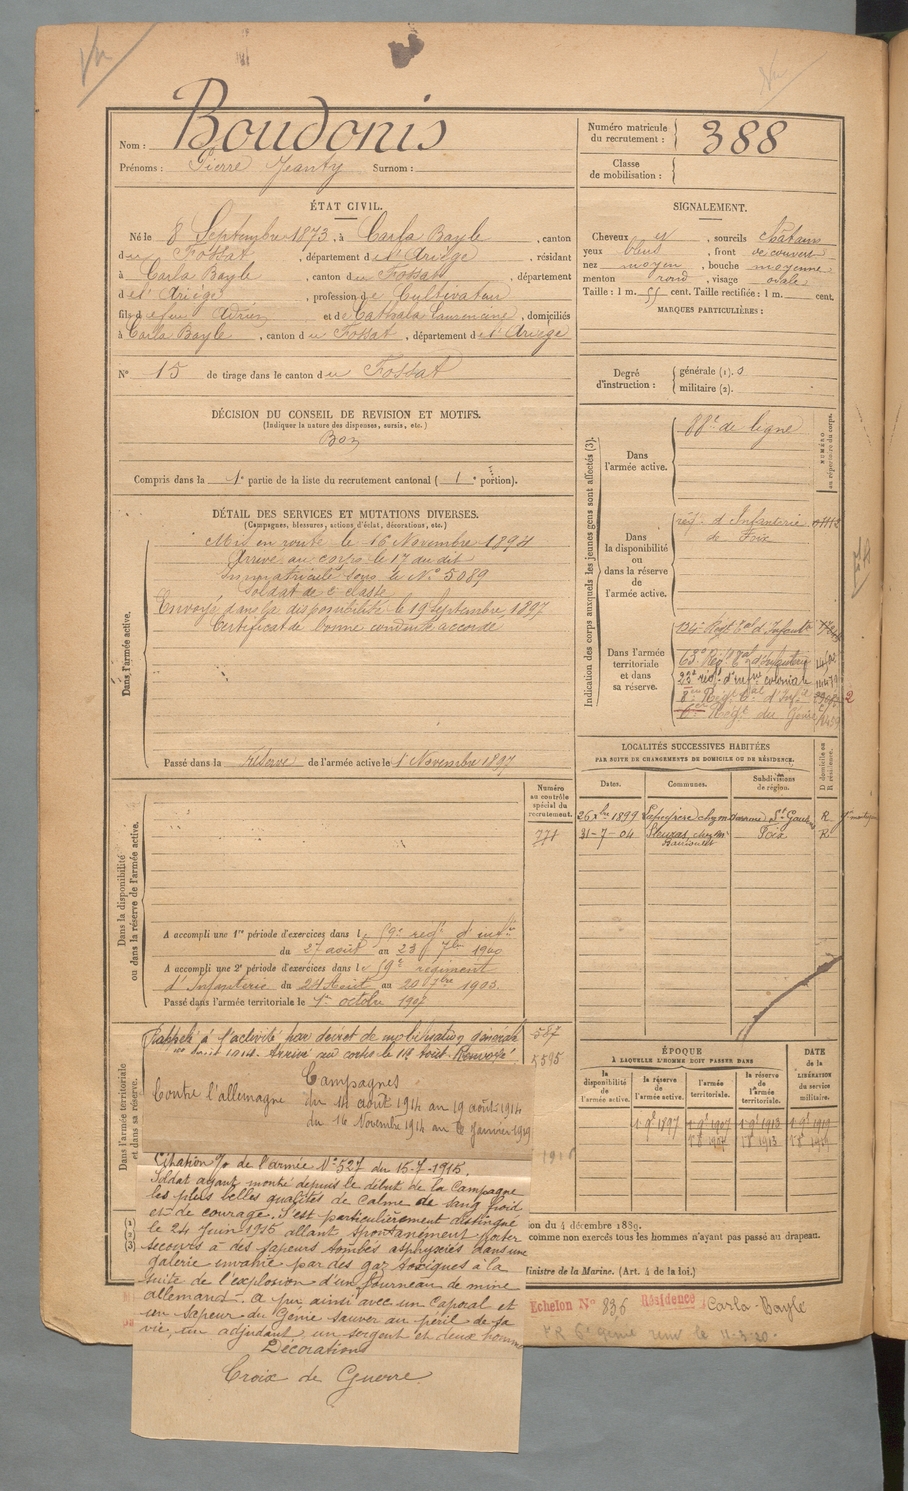 Nom : Boudonis
Prénoms : Pierre Jeanty Surnom :
Numéro matricule du recrutement : 388
Classe de mobilisation :
ÉTAT CIVIL.
Né le 8 Septembre 1873, à Carla Bayle, canton
du Fossat, département de l'Ariège, résidant
à Carla Bayle, canton du Fossat, département
de l'Ariège, profession de Cultivateur
fils de feu et de Laurencine, domiciliés
à Carla Bayle, canton du Fossat, département de l'Ariège
N° 15 de tirage dans le canton du Fossat
DÉCISION DU CONSEIL DE REVISION ET MOTIFS.
(Indiquer la nature des dispenses, sursis, etc.)
Bon
Compris dans la 1e partie de la liste du recrutement cantonal ( 1e portion).
DÉTAIL DES SERVICES ET MUTATIONS DIVERSES.
(Campagnes, blessures, actions d'éclat, décorations, etc.)
Dans l'armée active.
Mis en route le 16 Novembre 1894
Arrivé au corps le 17 du dit
Immatriculé sous le N° 5089
Soldat de 2e classe
Envoyé dans la disponibilité le 19 Septembre 1897
Certificat de bonne conduite accordé
Passé dans la Réserve de l'armée active le 1 Novembre 1897
SIGNALEMENT.
Cheveux et, sourcils châtains
yeux bleus, front découvert
nez moyen, bouche moyenne
menton rond, visage ovale
Taille : 1 m. 55 cent. Taille rectifiée : 1 m. cent.
MARQUES PARTICULIÈRES :
Degré d'instruction : générale (1). 0
militaire (2).
Indication des corps auxquels les jeunes gens sont affectés (3).
NUMÉRO au répertoire du corps.
Dans l'armée active.
88e de ligne
Dans la disponibilité ou dans la réserve de l'armée active.
régt d'Infanterie
de Foix
Dans l'armée territoriale et dans sa réserve.
134e Régt Tal d'Infantie
63e Régt Tal d'Infanterie
23e régt d'infie coloniale
8me Régt Tal d'Infie
6me Régt du Génie
2
LOCALITÉS SUCCESSIVES HABITÉES
PAR SUITE DE CHANGEMENTS DE DOMICILE OU DE RÉSIDENCE.
Dates. Communes. Subdivisions de région. D domicile ou R résidence.
26 xbre 1899 St Gaudens R
31-7-04 Foix R
Dans la disponibilité ou dans la réserve de l'armée active.
Numéro au contrôle spécial du recrutement.
771
A accompli une 1re période d'exercices dans le 59e régt d'infie
du 27 août au 23 7bre 1900
A accompli une 2e période d'exercices dans le 59e régiment
d'Infanterie du 24 Août au 20 7bre 1903
Passé dans l'armée territoriale le 1er octobre 1907
Dans l'armée territoriale et dans sa réserve.
Rappelé à l'activité par décret de mobilisation générale 587
août 1914. Arrivé au corps le 19 Août. Renvoyé 5595
Campagnes
Contre l'allemagne du 14 août 1914 au 19 août 1914
du 16 Novembre 1914 au 6 Janvier 1919
Citation % de l'armée N° 527 du 15-7-1915.
Soldat ayant montré depuis le début de la Campagne
les plus belles qualités de Calme de sang froid
et de courage. S'est particulièrement distingué
le 24 Juin 1915 allant spontanément porter
secours à des sapeurs tombés asphyxiés dans une
galerie envahie par des gaz toxiques à la
suite de l'explosion d'un fourneau de mine
allemand. A pu ainsi avec un Caporal et
un Sapeur du Génie sauver au péril de sa
vie, un adjudant un sergent et deux hommes
Décorations
Croix de Guerre
ÉPOQUE
À LAQUELLE L'HOMME DOIT PASSER DANS
la disponibilité de l'armée active. la réserve de l'armée active. l'armée territoriale. la réserve de l'armée territoriale.
DATE de la LIBÉRATION du service militaire.
1897
du 4 décembre 1889.
comme non exercés tous les hommes n'ayant pas passé au drapeau.
Ministre de la Marine. (Art. 4 de la loi.)
Echelon N° 836 Résidence : Carla-Bayle